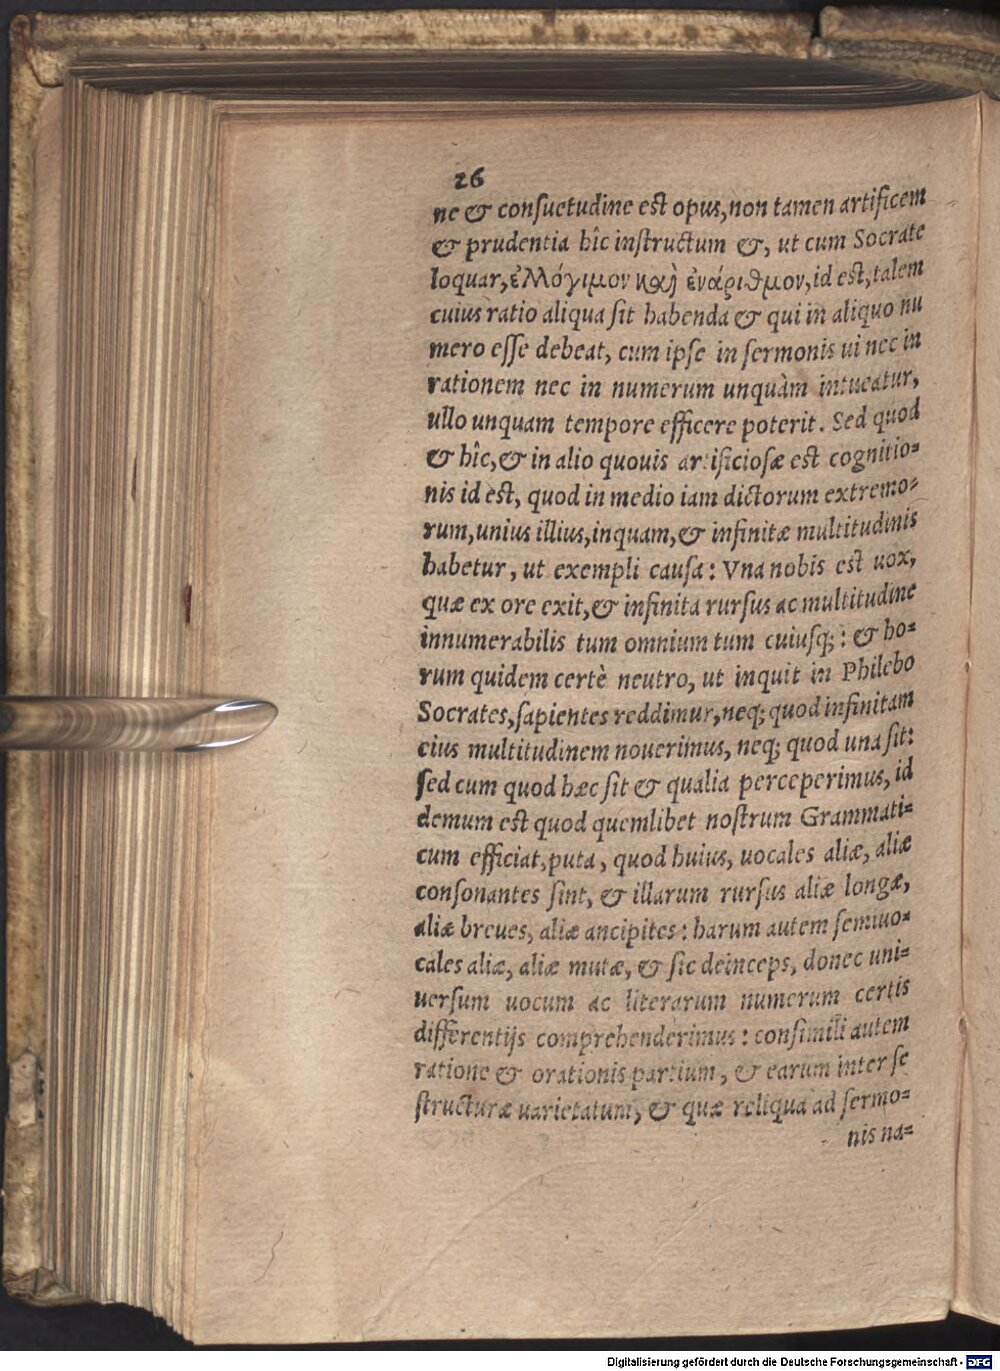 26
ne & conſuetudine est opus, non tamen artificem
& prudentia hîc inſtructum &, ut cum Socrate
loquar, ἐλλόγιμον καὶ ἐνάριθμον, id est, talem
cuius ratio aliqua ſit habenda & qui in aliquo nu
mero eſſe debeat, cum ipſe in ſermonis ui nec in
rationem nec in numerum unquàm intueatur,
ullo unquam tempore efficere poterit. Sed quod
& hîc, & in alio quouis artificioſæ est cognitio=
nis id est, quod in medio iam dictorum extremo=
rum, unius illius, inquam, & infinitæ multitudinis
habetur, ut exempli cauſa: Vna nobis est uox,
quæ ex ore exit, & infinita rurſus ac multitudine
innumerabilis tum omnium tum cuiuſq;: & ho=
rum quidem certè neutro, ut inquit in Philebo
Socrates, ſapientes reddimur, neq; quod infinitam
eius multitudinem nouerimus, neq; quod una ſit:
ſed cum quod hæc ſit & qualia perceperimus, id
demum est quod quemlibet noſtrum Grammati=
cum efficiat, puta, quod huius, uocales aliæ, aliæ
conſonantes ſint, & illarum rurſus aliæ longæ,
aliæ breues, aliæ ancipites: harum autem ſemiuo=
cales aliæ, aliæ mutæ, & ſic deinceps, donec uni=
uerſum uocum ac literarum numerum certis
differentijs comprehenderimus: conſimili autem
ratione & orationis partium, & earum inter ſe
ſtructuræ uarietatum, & quæ reliqua ad ſermo=
nis na=
Digitalisierung gefördert durch die Deutsche Forschungsgemeinschaft - DFG